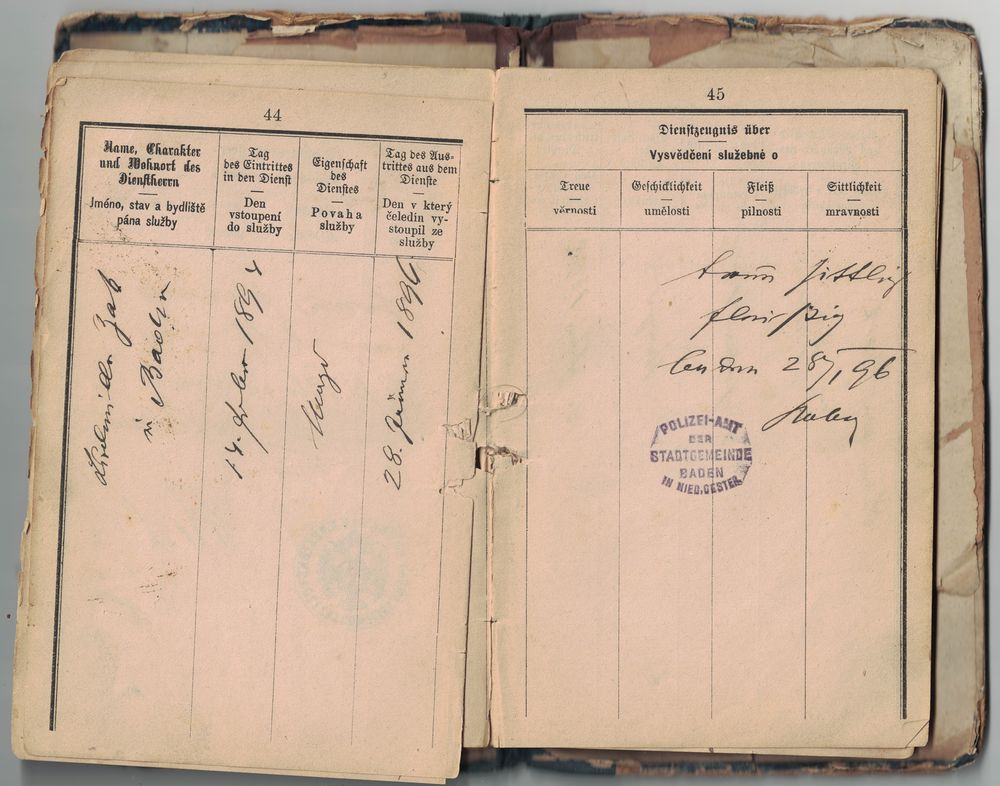 44
Name, Charakter
und Wohnort des
Dienstherrn
Jméno, stav a bydliště
pána služby
Tag
des Eintrittes
in den Dienst
Den
vstoupení
do služby
Eigenschaft
des
Dienstes
Povaha
služby
Tag des Aus-
trittes aus dem
Dienste
Den v který
čeledín vy-
stoupil ze
služby
in Baden
28. Jänner 1896
45
Dienstzeugnis über
Vysvědčení služebné o
Treue
věrnosti
Geschicklichkeit
umělosti
Fleiß
pilnosti
Sittlichkeit
mravnosti
treu sittlich
fleißig
Baden 28/I 96
POLIZEI-AMT
DER
STADTGEMEINDE
BADEN
IN NIED.OESTER.